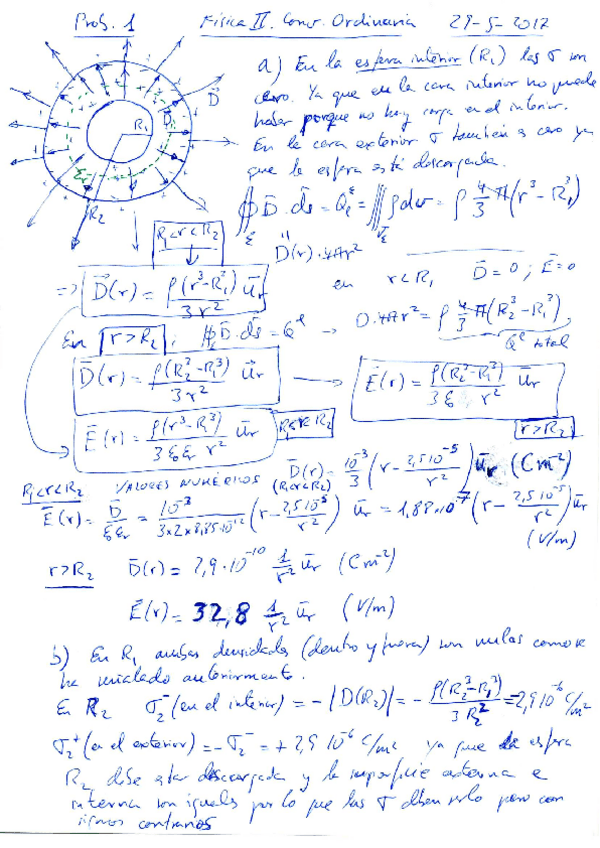 Prob. 1 Física II. Conv. Ordinaria 29-5-2017
a) En la esfera interior (R₁) las σ son
cero. Ya que en la cara interior no puede
haber porque no hay carga en el interior.
En la cara exterior σ también es cero ya
que la esfera está descargada.
D̄
R₁
R₂
∯ D̄·ds̄ = Q = ∭ρdv = ρ 4/3 π(r³ - R₁³)
R₁<r<R₂
D(r)·4πr²
en r<R₁ D̄=0; Ē=0
=> D̄(r) = ρ(r³-R₁³)/3r² ūr
En r>R₂; ∯D̄·ds̄ = Q → D·4πr² = ρ 4/3 π(R₂³-R₁³)
Q total
D̄(r) = ρ(R₂³-R₁³)/3r² ūr → Ē(r) = ρ(R₂³-R₁³)/3ε₀ r² ūr
r>R₂
Ē(r) = ρ(r³-R₁³)/3ε₀εr r² ūr R₁<r<R₂
R₁<r<R₂ VALORES NUMÉRICOS D̄(r) = 10⁻³/3 (r - 2,5 10⁻⁵/r²) ūr (Cm⁻²)
(R₁<r<R₂)
Ē(r) = D̄/ε₀εr = 10⁻³/3×2×8,85·10⁻¹² (r - 2,5 10⁻⁵/r²) ūr = 1,88·10⁻⁷ (r - 2,5 10⁻⁵/r²) ūr
(V/m)
r>R₂ D̄(r) = 2,9·10⁻¹⁰ 1/r² ūr (Cm⁻²)
Ē(r) = 32,8 1/r² ūr (V/m)
b) En R₁ ambas densidades (dentro y fuera) son nulas como se
ha señalado anteriormente.
En R₂ σ₂⁻ (en el interior) = -|D(R₂)| = - ρ(R₂³-R₁³)/3R₂² = 2,9 10⁻⁶ C/m²
σ₂⁺ (en el exterior) = -σ₂⁻ = +2,9 10⁻⁶ C/m² ya que la esfera
R₂ debe estar descargada y la superficie externa e
interna son iguales por lo que las σ deben serlo pero con
signos contrarios